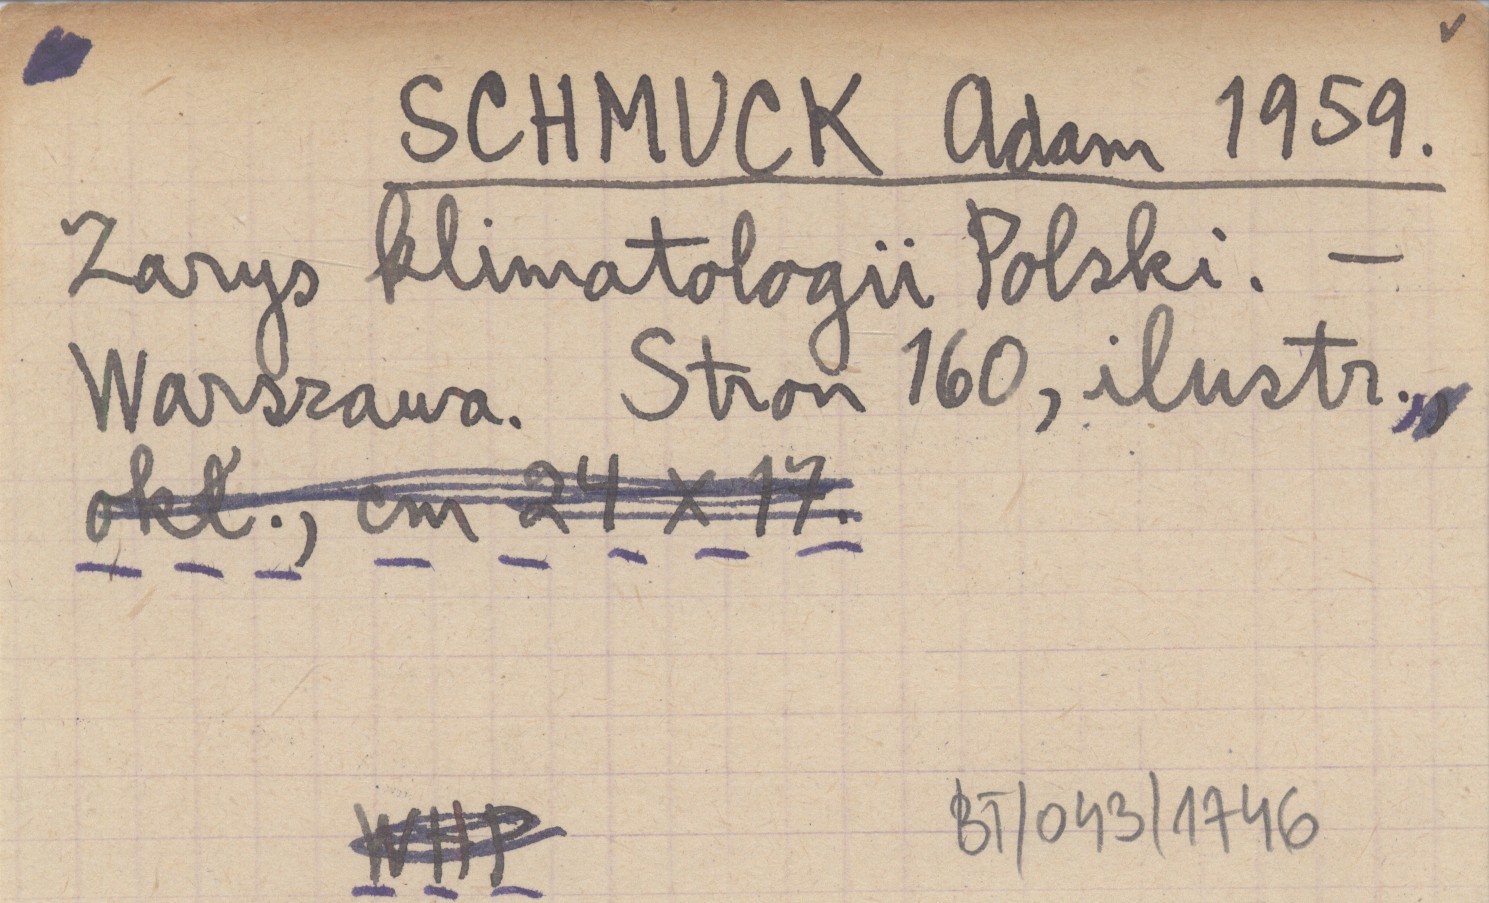 SCHMUCK Adam 1959.
Zarys klimatologii Polski. —
Warszawa. Stron 160, ilustr.,
okł., cm 24 x 17.
BT/043/1746